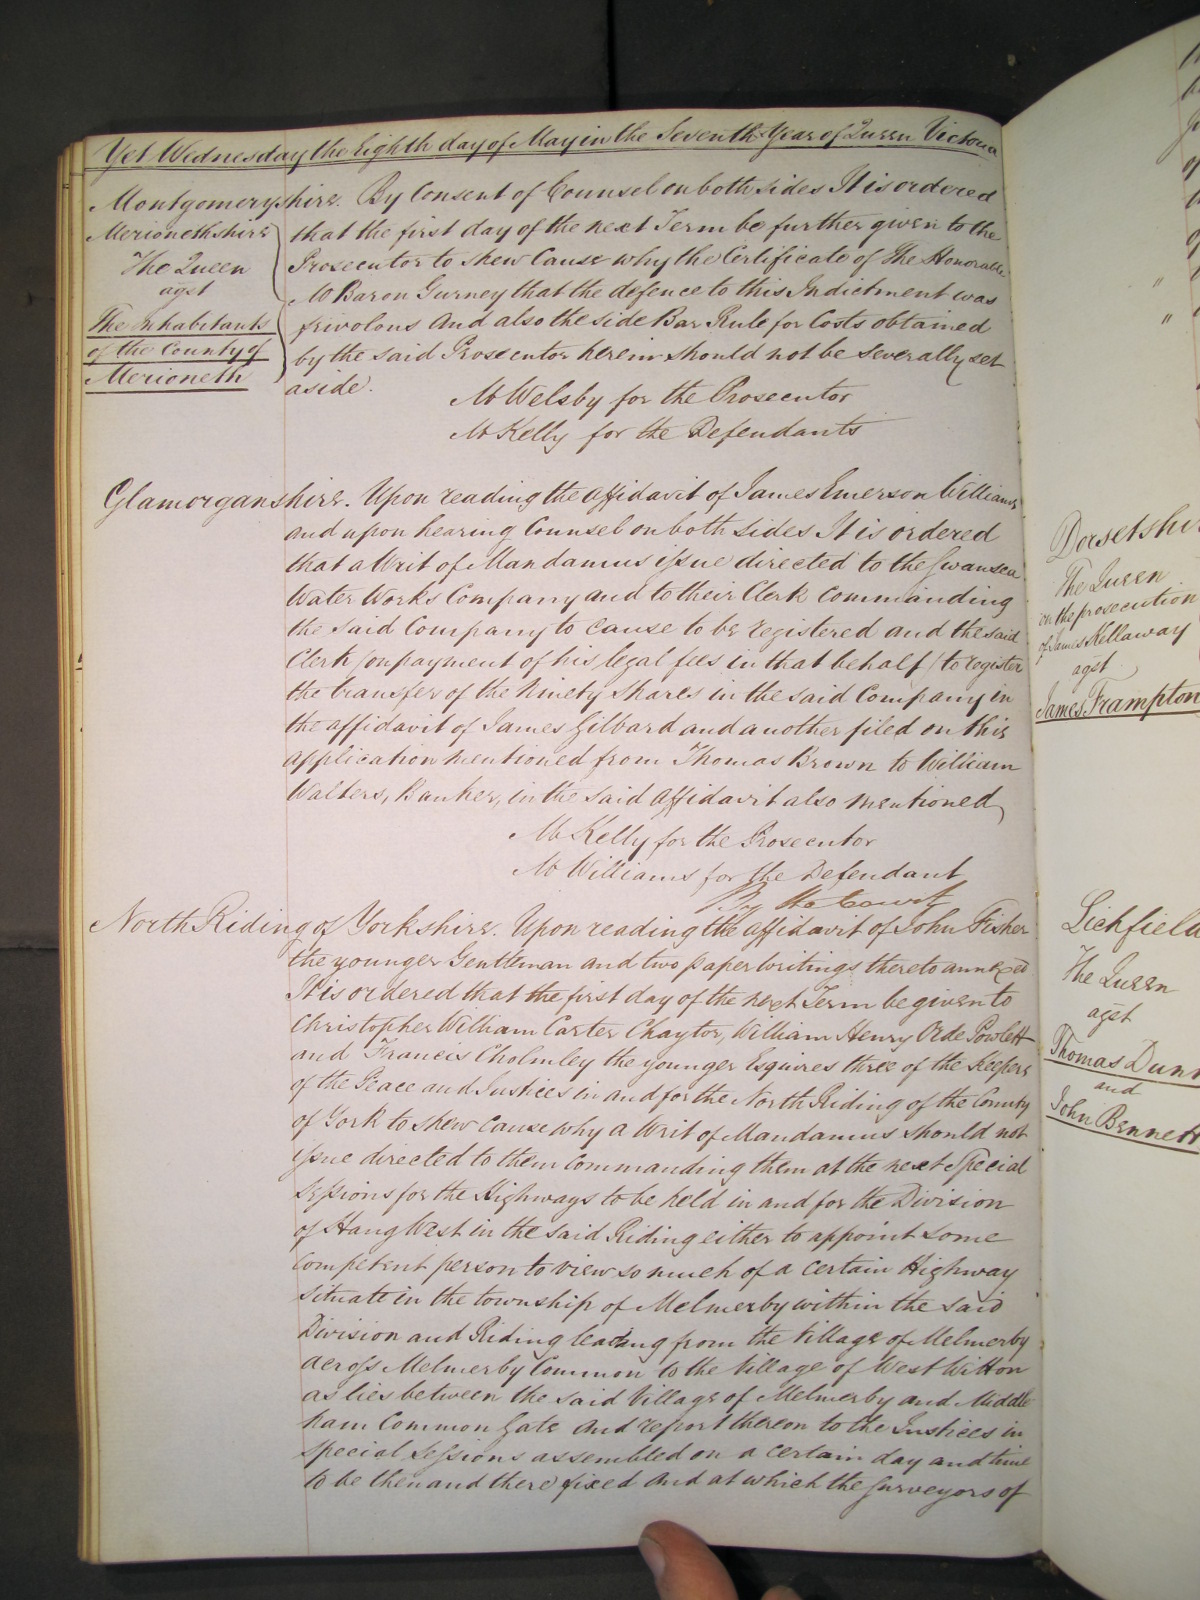 Yet Wednesday the Eighth day of May in the Seventh Year of Queen Victoria
Montgomeryshire. By Consent of Counsel on both sides It is ordered
Merionethshire
The Queen
agst
The Inhabitants
of the County of
Merioneth
that the first day of the next Term be further given to the
Prosecutor to shew Cause why the Certificate of The Honorable
Mr Baron Gurney that the defence to this Indictment was
frivolous And also the side Bar Rule for Costs obtained
by the said Prosecutor herein should not be severally set
aside.
Mr Welsby for the Prosecutor
Mr Kelly for the Defendants
Glamorganshire. Upon reading the affidavit of James Emerson Williams
and upon hearing Counsel on both sides It is ordered
that a Writ of Mandamus issue directed to the Swansea
Water Works Company and to their Clerk Commanding
the said Company to cause to be registered and the said
Clerk (on payment of his legal fees in that behalf) to register
the transfer of the ninety shares in the said Company in
the affidavit of James Gilbard and another filed on this
application mentioned from Thomas Brown to William
Walters, Banker, in the said Affidavit also mentioned
Mr Kelly for the Prosecutor
Mr Williams for the Defendant
By the Court
North Riding of Yorkshire. Upon reading the affidavit of John Fisher
the younger Gentleman and two paper writings thereto annexed
It is ordered that the first day of the next Term be given to
Christopher William Carter Chaytor, William Henry Orde Powlett
and Francis Cholmley the younger Esquires three of the Keepers
of the Peace and Justices in and for the North Riding of the County
of York to shew Cause why a Writ of Mandamus should not
issue directed to them Commanding them at the next Special
Sessions for the Highways to be held in and for the Division
of Hang West in the said Riding either to appoint some
competent person to view so much of a certain Highway
situate in the township of Melmerby within the said
Division and Riding leading from the Village of Melmerby
across Melmerby Common to the Village of West Witton
as lies between the said Village of Melmerby and Middle
ham Common Gate And report thereon to the Justices in
special Sessions assembled on a certain day and time
to be then and there fixed And at which the Surveyors of
Dorsetshi
The Queen
on the prosecution
of James Kellaway
agst
James Frampton
Lichfield
The Queen
agst
Thomas Dunn
and
John Bennett